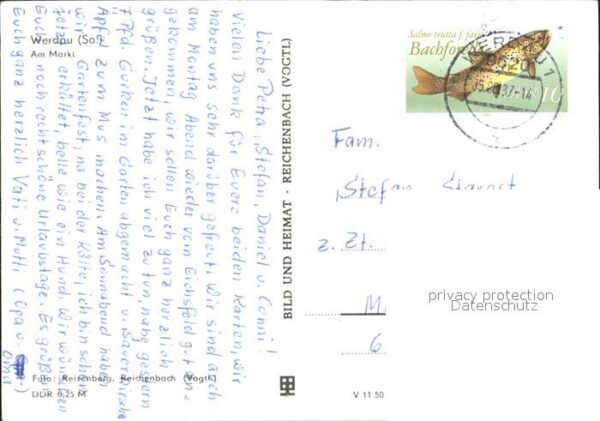 Werdau (Sa.)
Am Markt
Liebe Petra, Stefan, Daniel u. Conni!
Vielen Dank für Euere beiden Karten, wir
haben uns sehr darüber gefreut. Wir sind auch
am Montag Abend wieder vom Eichsfeld gut an-
gekommen, wir sollen Euch ganz herzlich
grüßen. Jetzt habe ich viel zu tun, habe gestern
7 Pfd. Gurken im Garten abgemacht u. Sauerkirsche
Äpfel zum Mus machen. Am Sonnabend haben
wir Gartenfest, na bei der Kälte, ich bin selber
jetzt erkältet belle wie ein Hund. Wir wünschen
Euch noch recht schöne Urlaubstage. Es grüßen
Euch ganz herzlich Vati u. Mutti (Opa u.
Oma)
Foto: Reitenberg, Reichenbach (Vogtl.)
DDR 6,25 M
BILD UND HEIMAT · REICHENBACH (VOGTL)
V 11 50
Salmo trutta f. fario
Bachforelle
10
WERDAU 1
Fam.
Stefan
z. Zt.
M
6
privacy protection
Datenschutz